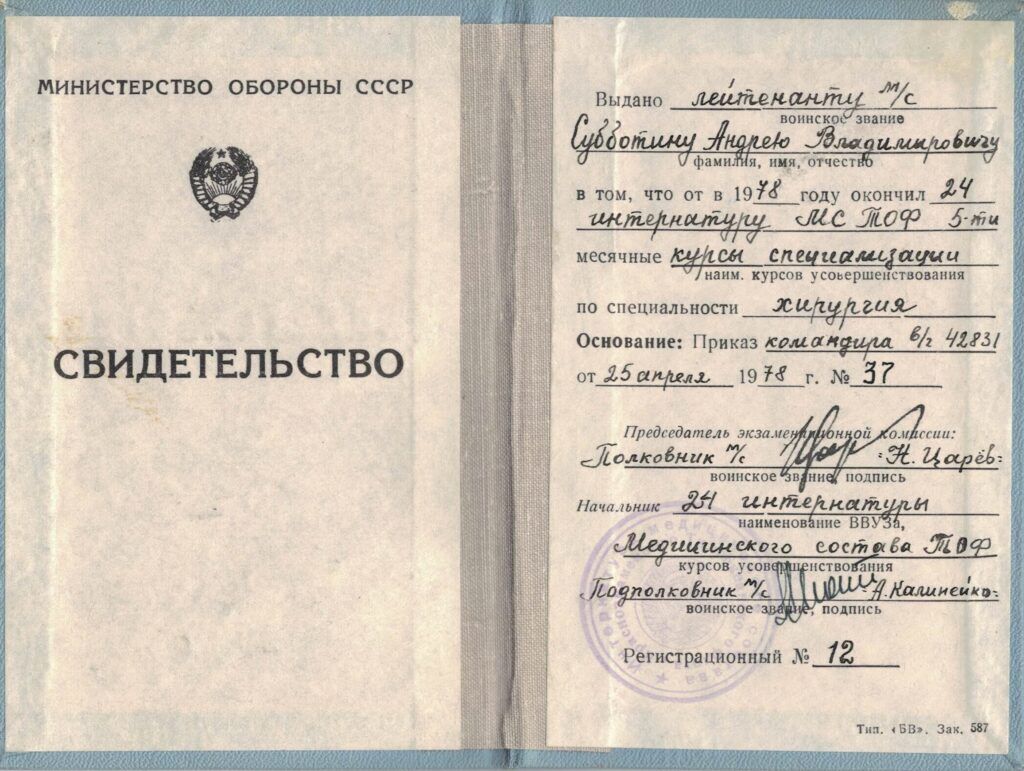 МИНИСТЕРСТВО ОБОРОНЫ СССР
СВИДЕТЕЛЬСТВО
Выдано лейтенанту м/с
воинское звание
Субботину Андрею Владимировичу
фамилия, имя, отчество
в том, что от в 1978 году окончил 24
интернатуру МС ТОФ 5-ти
месячные курсы специализации
наим. курсов усовершенствования
по специальности хирургия
Основание: Приказ командира в/ч 42831
от 25 апреля 1978 г. № 37
Председатель экзаменационной комиссии:
Полковник м/с Н. Царёв
воинское звание, подпись
Начальник 24 интернатуры
наименование ВВУЗа,
Медицинского состава ТОФ
курсов усовершенствования
Подполковник м/с А. Калинейко
воинское звание, подпись
Регистрационный № 12
Тип. «БВ». Зак. 587